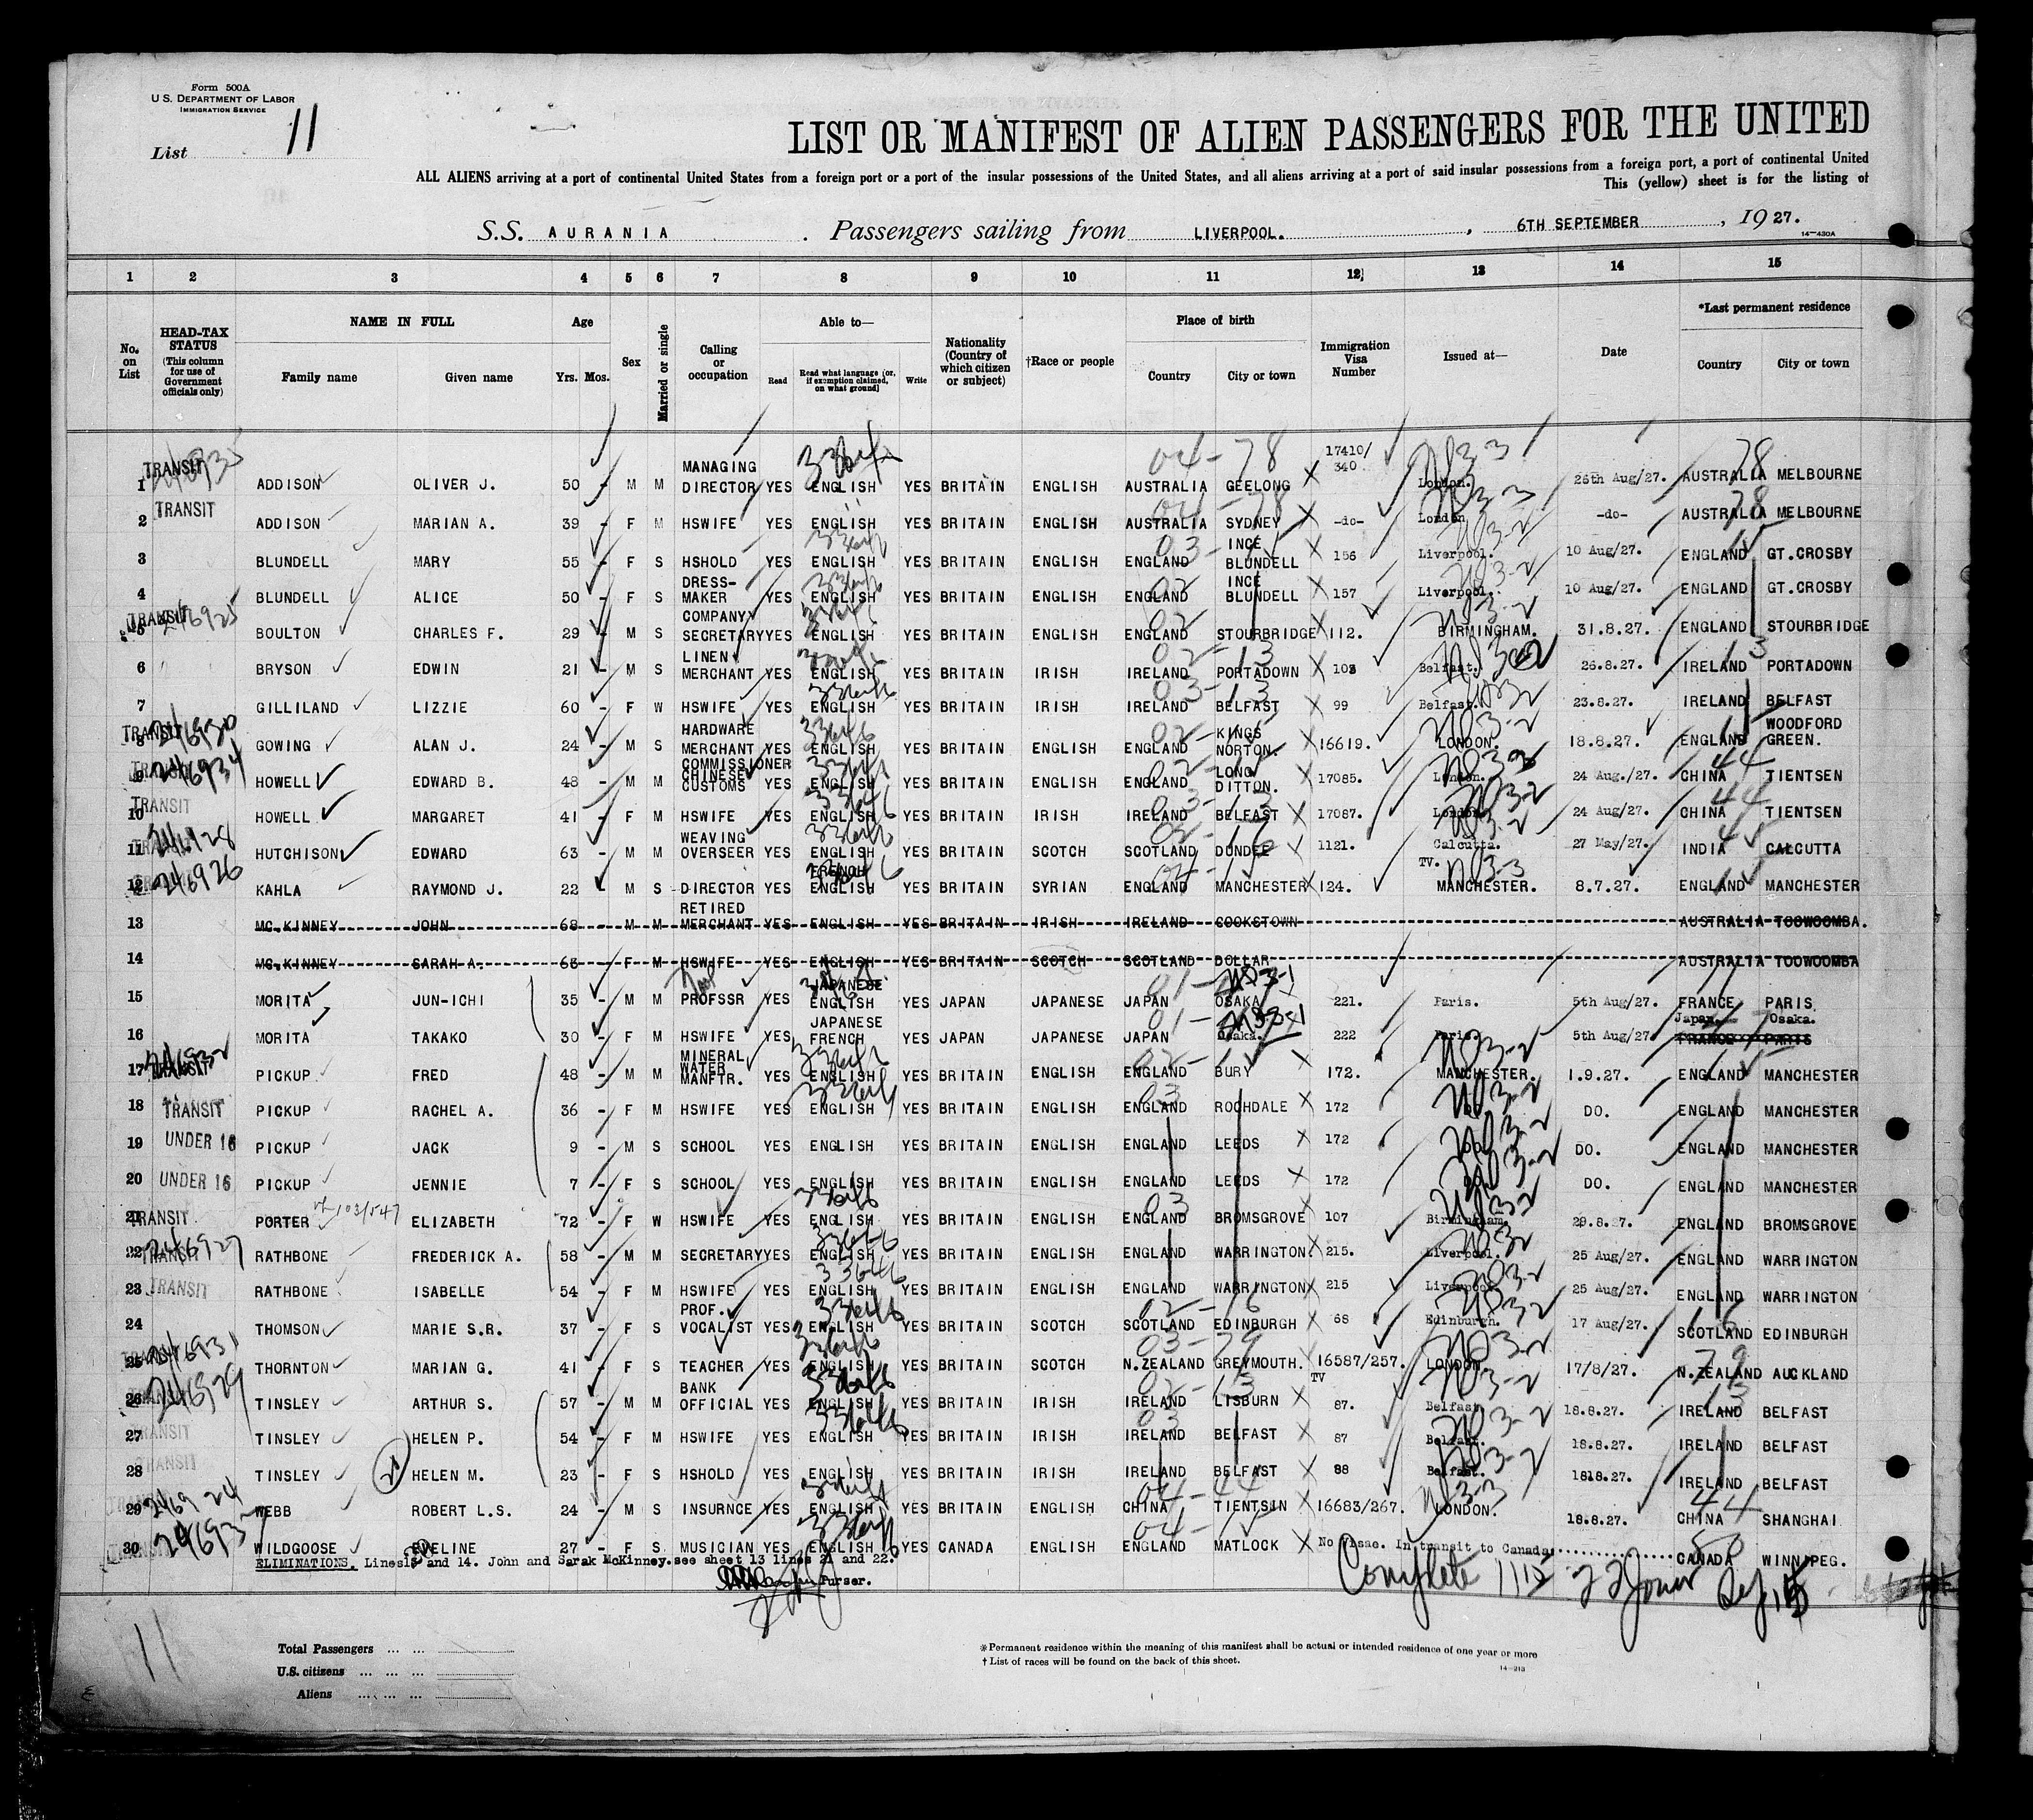 Form 500A
U. S. DEPARTMENT OF LABOR
IMMIGRATION SERVICE
List 11
LIST OR MANIFEST OF ALIEN PASSENGERS FOR THE UNITED
ALL ALIENS arriving at a port of continental United States from a foreign port or a port of the insular possessions of the United States, and all aliens arriving at a port of said insular possessions from a foreign port, a port of continental United
This (yellow) sheet is for the listing of
S.S. AURANIA. Passengers sailing from LIVERPOOL. , 6TH SEPTEMBER , 1927.
14—430A
1 2 3 4 5 6 7 8 9 10 11 12 13 14 15
No. on List
HEAD-TAX STATUS (This column for use of Government officials only)
NAME IN FULL Family name Given name
Age Yrs. Mos.
Sex
Married or single
Calling or occupation
Able to— Read Read what language (or, if exemption claimed, on what ground) Write
Nationality (Country of which citizen or subject)
†Race or people
Place of birth Country City or town
Immigration Visa Number
Issued at—
Date
*Last permanent residence Country City or town
1 TRANSIT ADDISON OLIVER J. 50 - M M MANAGING DIRECTOR YES ENGLISH YES BRITAIN ENGLISH AUSTRALIA GEELONG 17410/340 London. 26th Aug/27. AUSTRALIA MELBOURNE
2 TRANSIT ADDISON MARIAN A. 39 - F M HSWIFE YES ENGLISH YES BRITAIN ENGLISH AUSTRALIA SYDNEY -do- London -do- AUSTRALIA MELBOURNE
3 BLUNDELL MARY 55 - F S HSHOLD YES ENGLISH YES BRITAIN ENGLISH ENGLAND INCE BLUNDELL 156 Liverpool. 10 Aug/27. ENGLAND GT.CROSBY
4 BLUNDELL ALICE 50 - F S DRESS-MAKER YES ENGLISH YES BRITAIN ENGLISH ENGLAND INCE BLUNDELL 157 Liverpool. 10 Aug/27. ENGLAND GT.CROSBY
5 TRANSIT 246925 BOULTON CHARLES F. 29 - M S COMPANY SECRETARY YES ENGLISH YES BRITAIN ENGLISH ENGLAND STOURBRIDGE 112. BIRMINGHAM. 31.8.27. ENGLAND STOURBRIDGE
6 BRYSON EDWIN 21 - M S LINEN MERCHANT YES ENGLISH YES BRITAIN IRISH IRELAND PORTADOWN 103 Belfast. 26.8.27. IRELAND PORTADOWN
7 GILLILAND LIZZIE 60 - F W HSWIFE YES ENGLISH YES BRITAIN IRISH IRELAND BELFAST 99 Belfast. 23.8.27. IRELAND BELFAST
8 TRANSIT 246930 GOWING ALAN J. 24 - M S HARDWARE MERCHANT YES ENGLISH YES BRITAIN ENGLISH ENGLAND KINGS NORTON. 16619. LONDON. 18.8.27. ENGLAND WOODFORD GREEN.
9 246934 HOWELL EDWARD B. 48 - M M COMMISSIONER CHINESE CUSTOMS YES ENGLISH YES BRITAIN ENGLISH ENGLAND LONG DITTON. 17085. London. 24 Aug./27. CHINA TIENTSEN
10 TRANSIT HOWELL MARGARET 41 - F M HSWIFE YES ENGLISH YES BRITAIN IRISH IRELAND BELFAST 17087. London 24 Aug/27. CHINA TIENTSEN
11 246928 HUTCHISON EDWARD 63 - M M WEAVING OVERSEER YES ENGLISH YES BRITAIN SCOTCH SCOTLAND DUNDEE 1121. Calcutta. 27 May/27. INDIA CALCUTTA
12 246926 KAHLA RAYMOND J. 22 - M S DIRECTOR YES FRENCH ENGLISH YES BRITAIN SYRIAN ENGLAND MANCHESTER 124. TV. MANCHESTER. 8.7.27. ENGLAND MANCHESTER
13 MC.KINNEY JOHN 68 - M M RETIRED MERCHANT YES ENGLISH YES BRITAIN IRISH IRELAND COOKSTOWN AUSTRALIA TOOWOOMBA.
14 MC.KINNEY SARAH A. 63 - F M HSWIFE YES ENGLISH YES BRITAIN SCOTCH SCOTLAND DOLLAR AUSTRALIA TOOWOOMBA
15 MORITA JUN-ICHI 35 - M M PROFSSR YES JAPANESE ENGLISH YES JAPAN JAPANESE JAPAN OSAKA 221. Paris. 5th Aug/27. FRANCE PARIS
16 MORITA TAKAKO 30 - F M HSWIFE YES JAPANESE FRENCH YES JAPAN JAPANESE JAPAN Osaka. 222 Paris. 5th Aug/27 Japan. Osaka. FRANCE PARIS
17 TRANSIT 246932 PICKUP FRED 48 - M M MINERAL WATER MANFTR. YES ENGLISH YES BRITAIN ENGLISH ENGLAND BURY 172. MANCHESTER. 1.9.27. ENGLAND MANCHESTER
18 TRANSIT PICKUP RACHEL A. 36 - F M HSWIFE YES ENGLISH YES BRITAIN ENGLISH ENGLAND ROCHDALE 172 DO. ENGLAND MANCHESTER
19 UNDER 16 PICKUP JACK 9 - M S SCHOOL YES ENGLISH YES BRITAIN ENGLISH ENGLAND LEEDS 172 DO. ENGLAND MANCHESTER
20 UNDER 16 PICKUP JENNIE 7 - F S SCHOOL YES ENGLISH YES BRITAIN ENGLISH ENGLAND LEEDS 172 DO. ENGLAND MANCHESTER
21 TRANSIT PORTER ELIZABETH 72 - F W HSWIFE YES ENGLISH YES BRITAIN ENGLISH ENGLAND BROMSGROVE 107 Birmingham. 29.8.27. ENGLAND BROMSGROVE
22 TRANSIT 246927 RATHBONE FREDERICK A. 58 - M M SECRETARY YES ENGLISH YES BRITAIN ENGLISH ENGLAND WARRINGTON. 215. Liverpool. 25 Aug/27. ENGLAND WARRINGTON
23 TRANSIT RATHBONE ISABELLE 54 - F M HSWIFE YES ENGLISH YES BRITAIN ENGLISH ENGLAND WARRINGTON 215 Liverpool. 25 Aug/27. ENGLAND WARRINGTON
24 THOMSON MARIE S.R. 37 - F S PROF. VOCALIST YES ENGLISH YES BRITAIN SCOTCH SCOTLAND EDINBURGH 68 Edinburgh. 17 Aug/27. SCOTLAND EDINBURGH
25 246931 THORNTON MARIAN G. 41 - F S TEACHER YES ENGLISH YES BRITAIN SCOTCH N.ZEALAND GREYMOUTH. 16587/257. TV LONDON. 17/8/27. N.ZEALAND AUCKLAND
26 246929 TINSLEY ARTHUR S. 57 - M M BANK OFFICIAL YES ENGLISH YES BRITAIN IRISH IRELAND LISBURN 87. Belfast. 18.8.27. IRELAND BELFAST
27 TRANSIT TINSLEY HELEN P. 54 - F M HSWIFE YES ENGLISH YES BRITAIN IRISH IRELAND BELFAST 87 Belfast. 18.8.27. IRELAND BELFAST
28 TRANSIT TINSLEY HELEN M. 23 - F S HSHOLD YES ENGLISH YES BRITAIN IRISH IRELAND BELFAST 88 Belfast. 1818.27. IRELAND BELFAST
29 246924 WEBB ROBERT L.S. 24 - M S INSURNCE YES ENGLISH YES BRITAIN ENGLISH CHINA TIENTSIN 16683/267. LONDON. 18.8.27. CHINA SHANGHAI
30 WILDGOOSE EVELINE 27 - F S MUSICIAN YES ENGLISH YES CANADA ENGLISH ENGLAND MATLOCK No Visae. In transit to Canada. CANADA WINNIPEG.
ELIMINATIONS. Lines13 and 14. John and Sarak McKinney.see sheet 13 lines 21 and 22.
Purser.
Complete
11
Total Passengers
U.S. citizens
Aliens
*Permanent residence within the meaning of this manifest shall be actual or intended residence of one year or more
† List of races will be found on the back of this sheet.
14—213